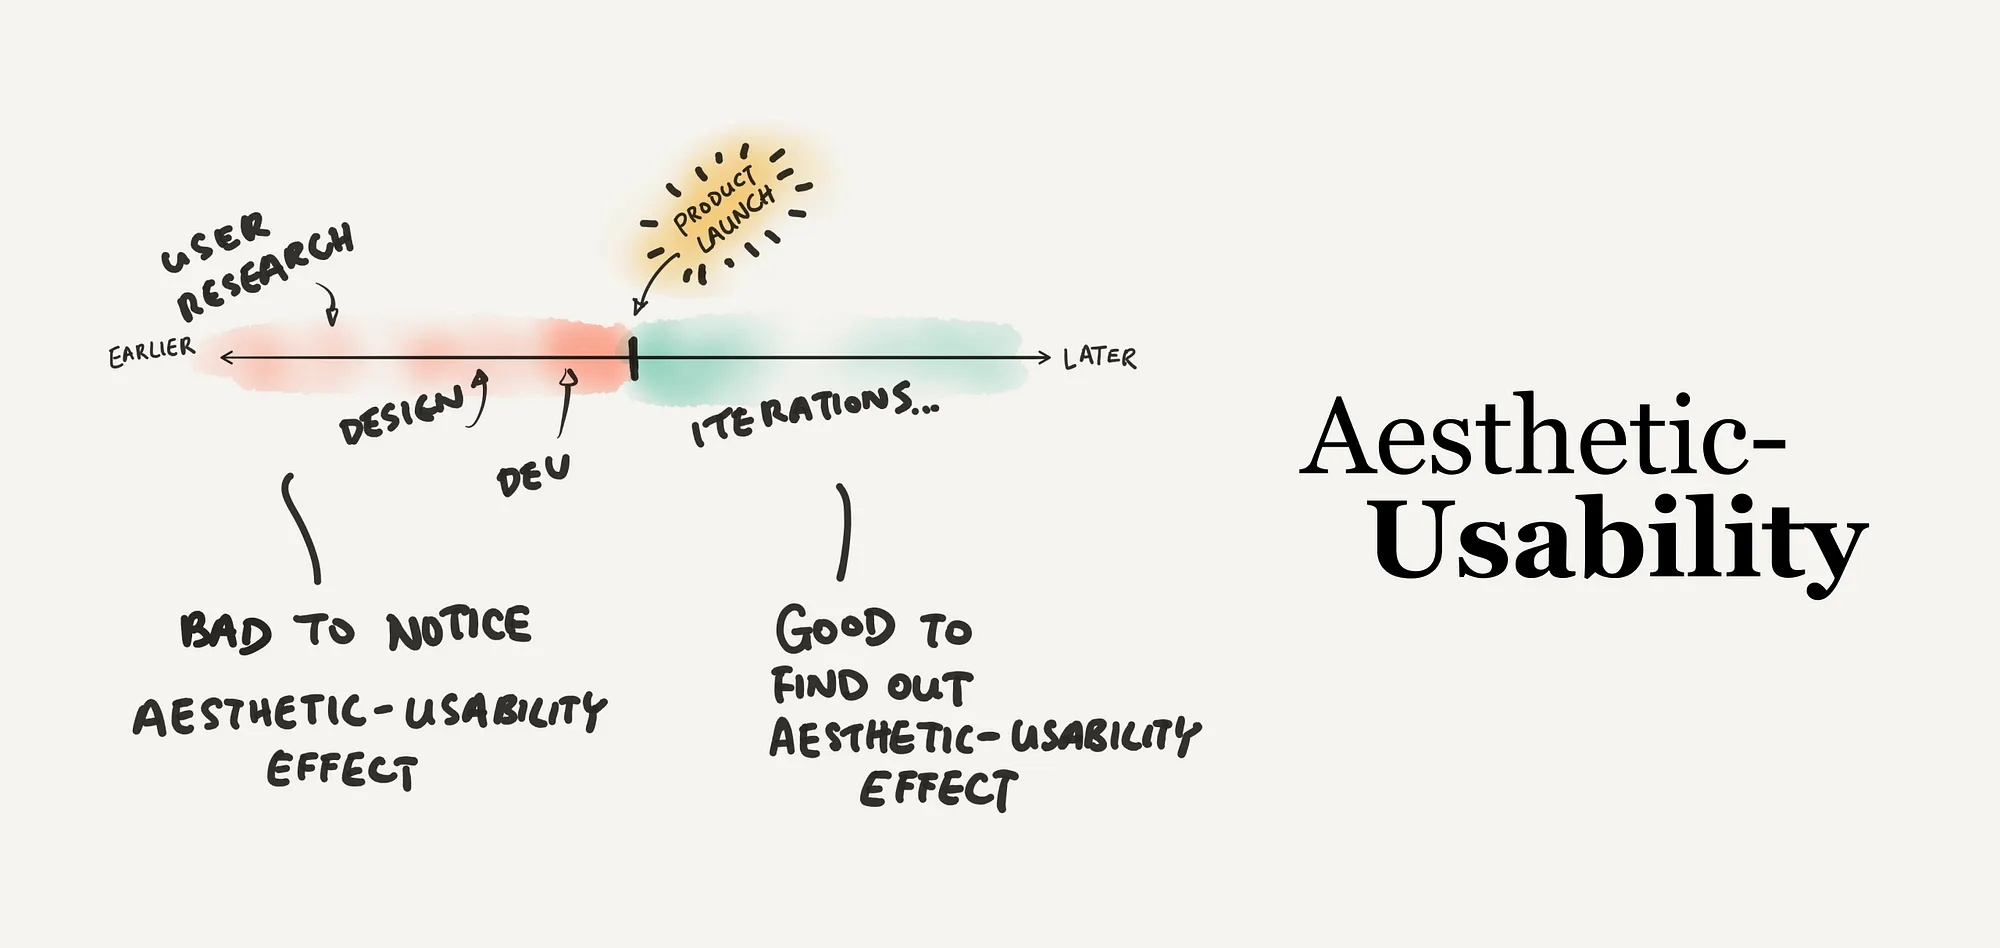 USER
RESEARCH
PRODUCT
LAUNCH
EARLIER
LATER
DESIGN
DEV
ITERATIONS...
BAD TO NOTICE
AESTHETIC-USABILITY
EFFECT
GOOD TO
FIND OUT
AESTHETIC-USABILITY
EFFECT
Aesthetic-
Usability